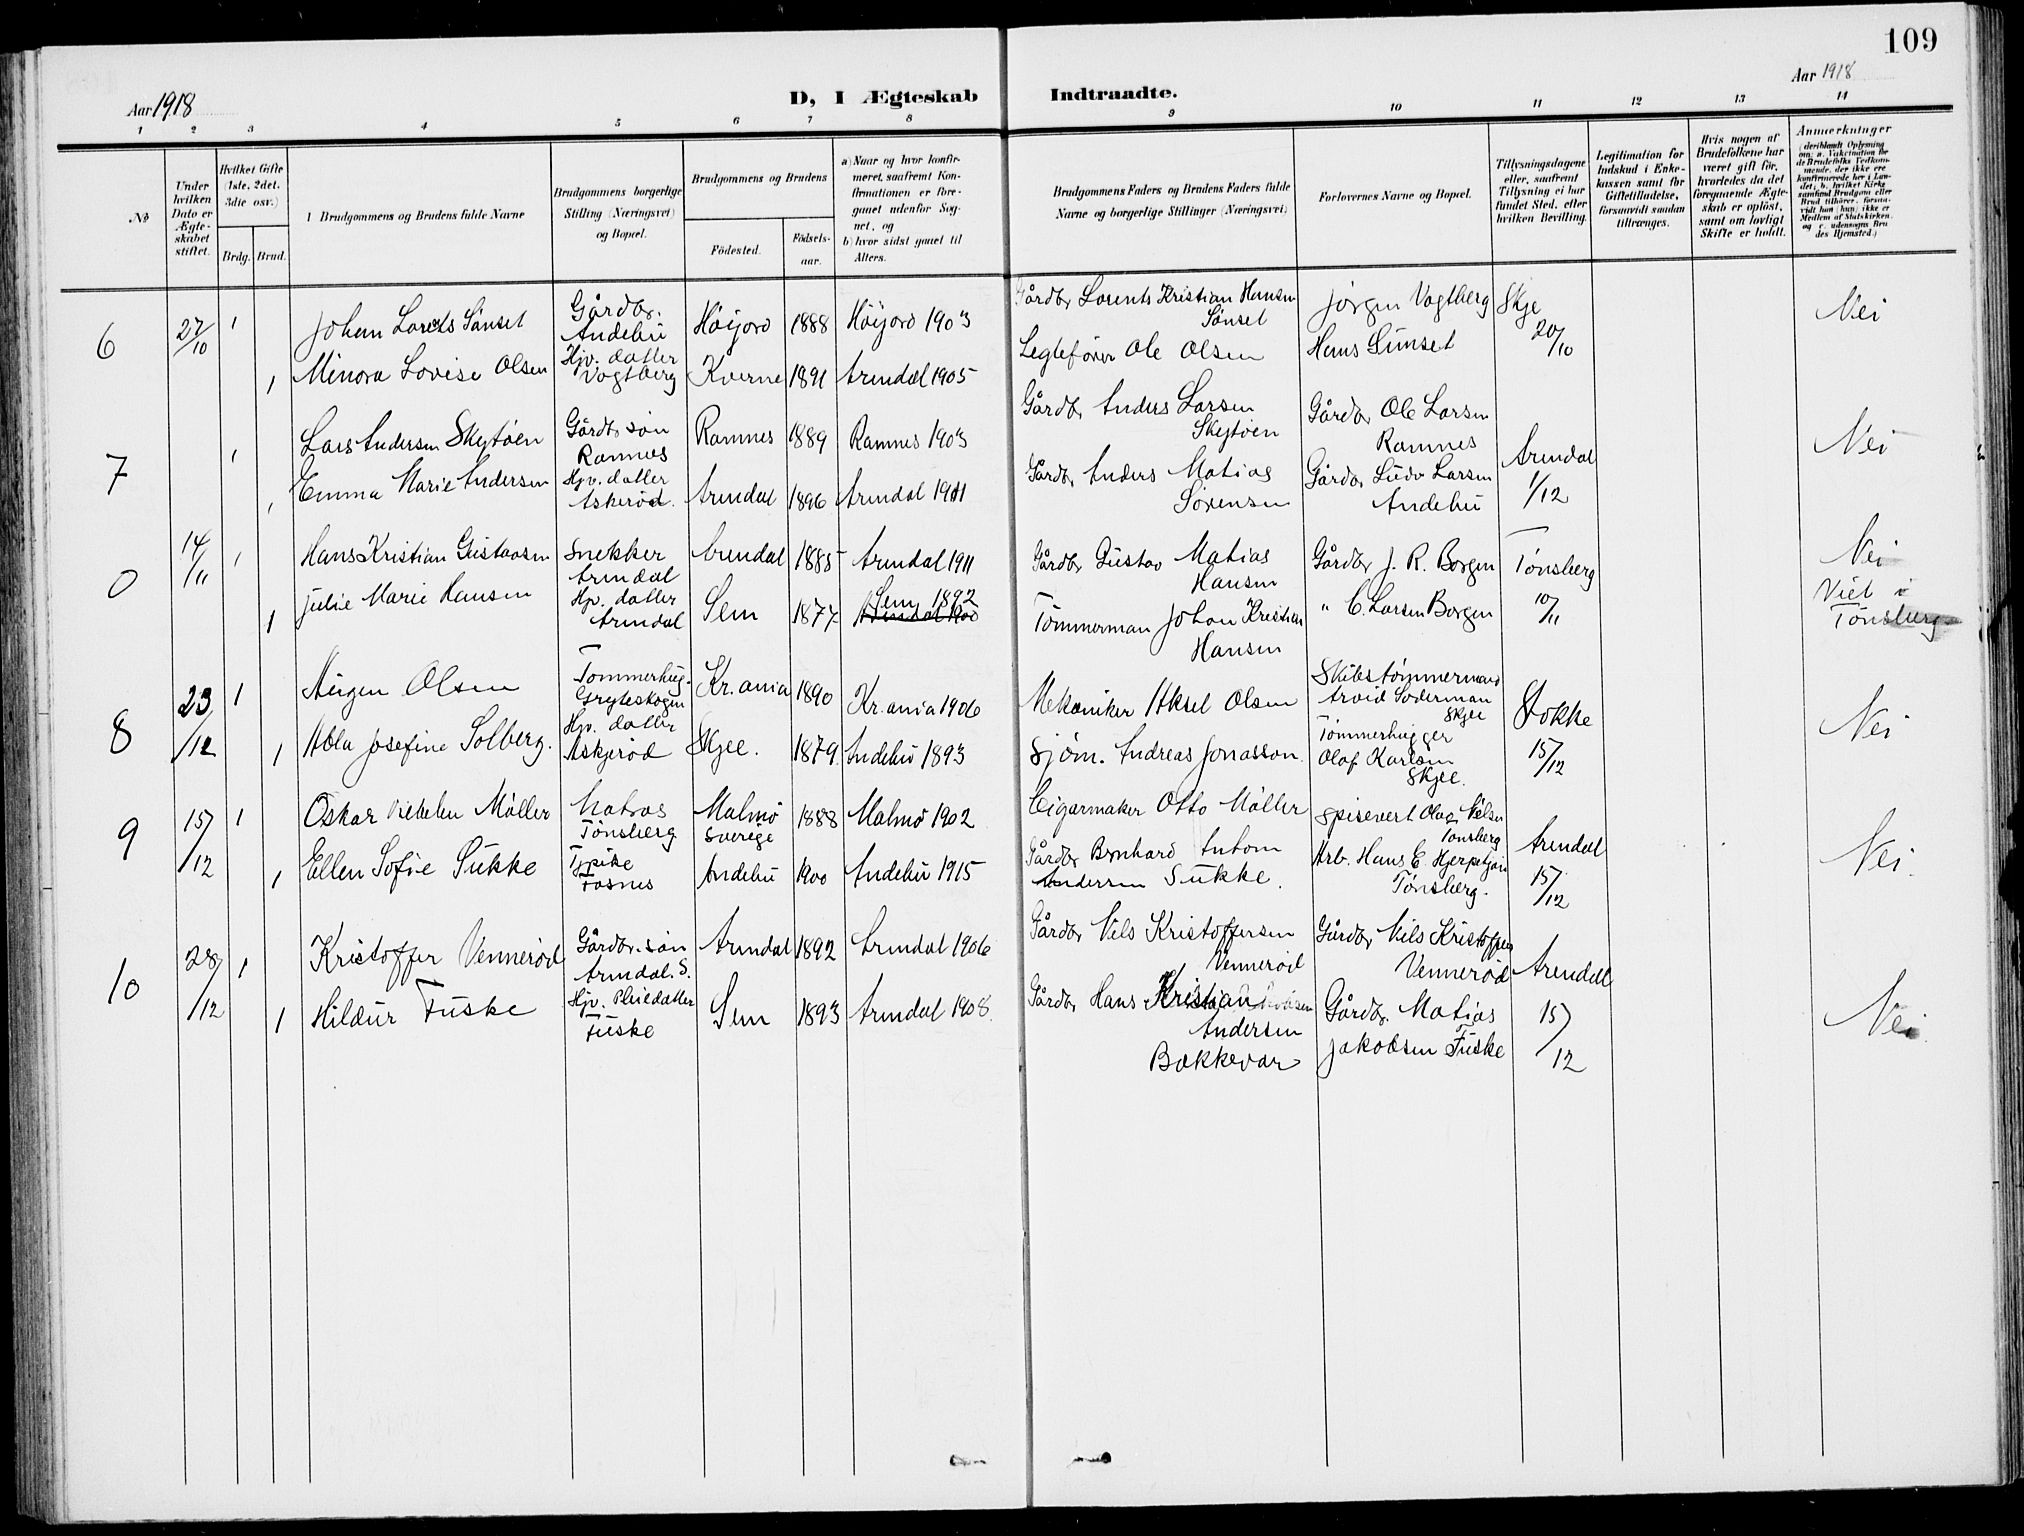 109
Aar 1918
D, I Ægteskab Indtraadte.
Aar 1918
1 2 3 4 5 6 7 8 9 10 11 12 13 14
No
Under hvilken Dato er Ægteskabet stiftet.
Hvilket Gifte (1ste, 2det, 3die osv.)
Brdg. Brud.
Brudgommens og Brudens fulde Navne
Brudgommens borgerlige Stilling (Næringsvei) og Bopæl.
Brudgommens og Brudens
Födested. Födsels-aar.
a) Naar og hvor konfirmeret, saafremt Konfirmationen er foregaaet udenfor Sognet, og
b) hvor sidst gaaet til Alters.
Brudgommens Faders og Brudens Faders fulde Navne og borgerlige Stillinger (Næringsvei)
Forlovernes Navne og Bopæl.
Tillysningsdagene eller, saafremt Tillysning ei har fundet Sted, efter hvilken Bevilling.
Legitimation for Indskud i Enkekassen samt for Giftetilladelse, forsaavidt saadan tiltrænges.
Hvis nogen af Brudefolkene har været gift för, hvorledes da det foregaaende Ægteskab er oplöst, samt om lovligt Skifte er holdt.
Anmerkninger
6 27/10 1 Johan Lorents Sønset Gårdbr. Andebu Höijord 1888 Höijord 1903 Gårdbr Lorents Kristian Hansen Sønset Jørgen Vogtberg Skje 20/10 Nei
1 Minora Lovise Olsen Hjv. datter Vogtberg Kverne 1891 Arendal 1905 Legtefører Ole Olsen Hans Sünset
7 1 Lars Andersen Skejtøen Gårdbr søn Ramnes Ramnes 1889 Ramnes 1903 Gårdbr Anders Larsen Skejtøen Gårdbr Ole Larsen Ramnes Arendal 1/12 Nei
1 Emma Marie Andersen Hjv. datter Askerød. Arendal 1896 Arendal 1911 Gårdbr Anders Matias Sørensen Gårdbr Ludv Larsen Andebu
0 14/11 1 Hans Kristian Gustavsen Snekker Arendal Arendal 1885 Arendal 1911 Gårdbr Gustav Matias Hansen Gårdbr J. R. Borgen Tønsberg 10/11 Nei
1 Julie Marie Hansen Hjv. datter Arendal Sem 1877 Sem 1892 Tömmerman Johan Kristian Hansen " C. Larsen Borgen Viet i Tønsberg
8 23/12 1 Aügen Olsen Tommerhug. Gryteskogen Kr.ania 1890 Kr.ania 1906 Mekaniker Aksel Olsen Skibstømmermand Arvid Soderman Skjee Stokke 15/12 Nei
1 Abla Josefine Solberg. Hjv. datter Askjerød Skjee. 1879 Andebu 1893 Sjøm. Andreas Jonasson. Tømmerhugger Olaf Karlsen Skjee.
9 15/12 1 Oskar Vilhelm Møller Matros Tønsberg Malmø Sverige 1888 Malmø 1902 Cigarmaker Otto Møller Spisevert Olaf Nilsen Tønsberg Arendal 15/12 Nei.
1 Ellen Sofie Sukke Tjpike Fosnes Andebu 1900 Andebu 1915 Gårdbr Bernhard Antom Andersen Sukke. Arb. Hans E. Hjerpetjøn Tønsberg.
10 28/12 1 Kristoffer Vennerød Gårdbr. søn Arendal. S. Arendal 1892 Arendal 1906 Gårdbr Nils Kristoffersen Vennerød Gårdbr Nils Kristoffersen Vennerød Arendal 15/12 Nei
1 Hildur Fuske Hjv. Pleiedatter Fuske Sem 1893 Arendal 1908. Gårdbr Hans Kristian Andersen Bakkevar Gårdbr. Matias Jakobsen Fuske